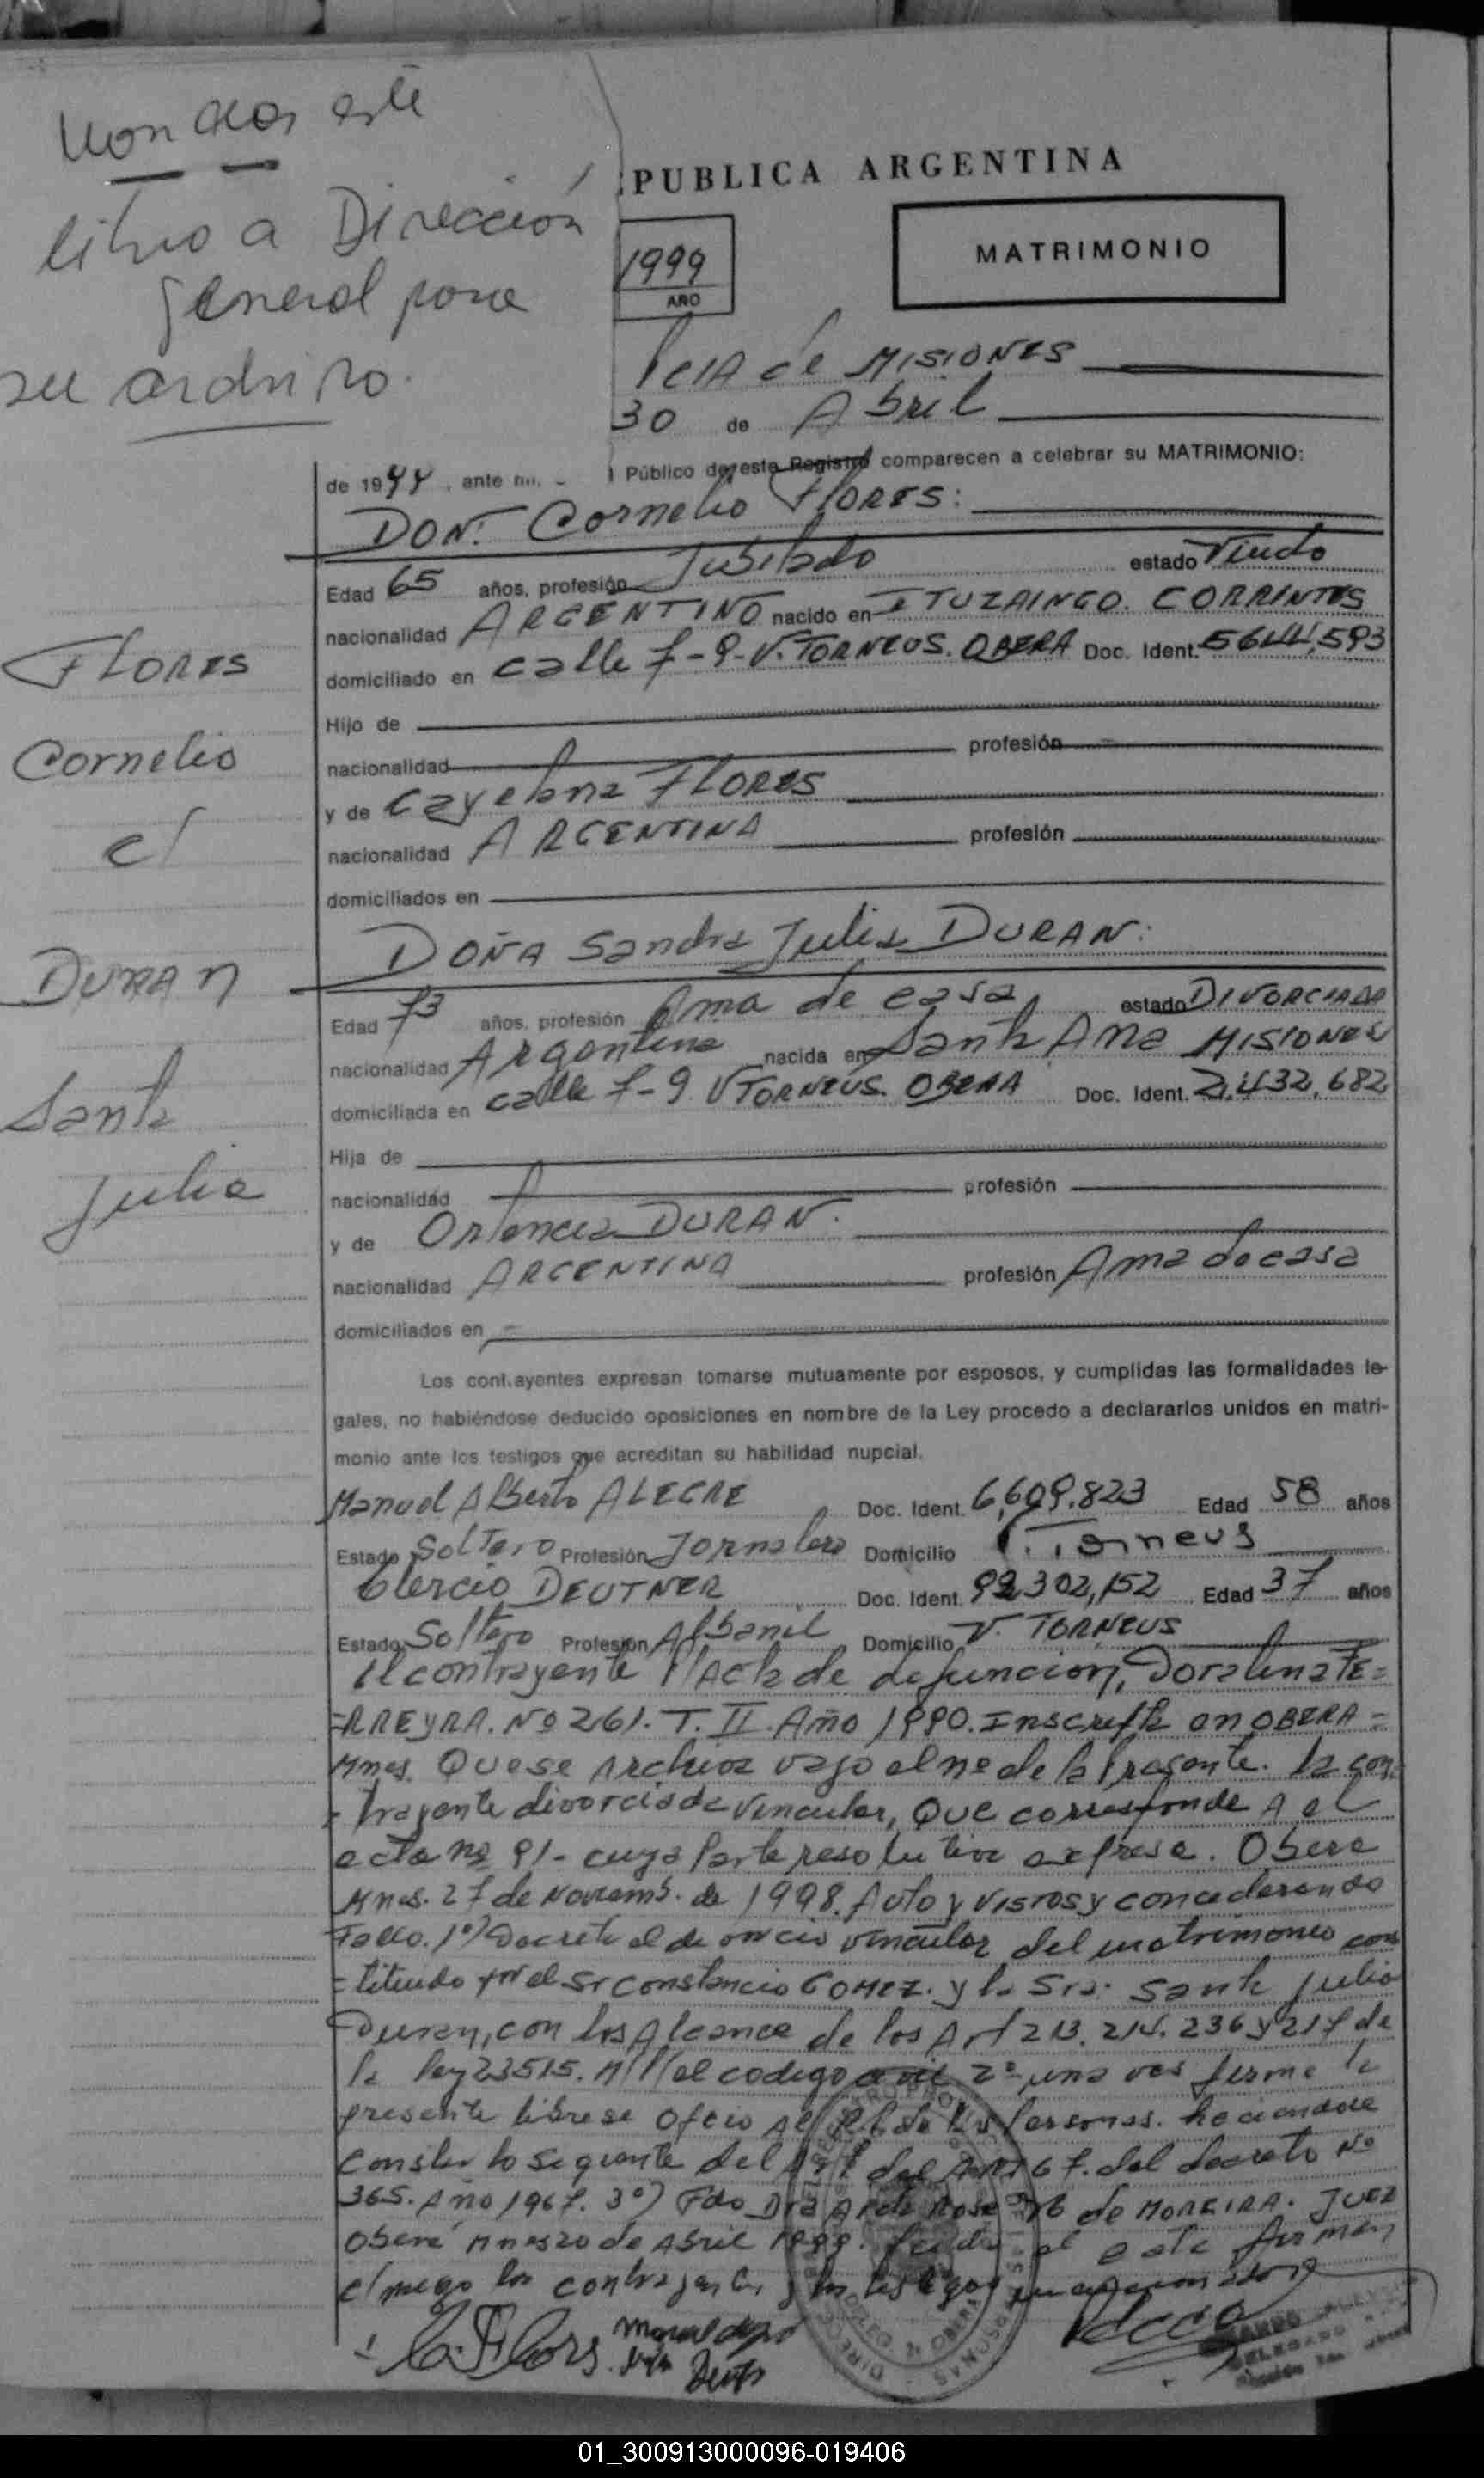 este
libro a Dirección
general para
su
PUBLICA ARGENTINA
1999
AÑO
MATRIMONIO
Pcia de MISIONES
30 de Abril
de 1999, ante mí, Público de este Registro comparecen a celebrar su MATRIMONIO:
DON. Cornelio FLORES:
Edad 65 años, profesión Jubilado estado Viudo
nacionalidad ARGENTINO nacido en ITUZAINGO. CORRIENTES
domiciliado en calle 7-9-V. TORNEUS. OBERA Doc. Ident. 5644,593
Hijo de
nacionalidad profesión
y de Cayetana FLORES
nacionalidad ARGENTINA profesión
domiciliados en
DOÑA Santa Julia DURAN:
Edad 73 años, profesión Ama de casa estado DIVORCIADA
nacionalidad Argentina nacida en Santa Ana MISIONES
domiciliada en calle 7-9 V TORNEUS. OBERA Doc. Ident. 2,432,682
Hija de
nacionalidad profesión
y de Ortencia DURAN.
nacionalidad ARGENTINA profesión Ama de casa
domiciliados en
Los contrayentes expresan tomarse mutuamente por esposos, y cumplidas las formalidades le-
gales, no habiéndose deducido oposiciones en nombre de la Ley procedo a declararlos unidos en matri-
monio ante los testigos que acreditan su habilidad nupcial.
Manuel Alberto ALEGRE Doc. Ident. 6,609.823 Edad 58 años
Estado Soltero Profesión Jornalero Domicilio V. Torneus
Clercio DEUTNER Doc. Ident. 92302,152 Edad 37 años
Estado Soltero Profesión Albanil Domicilio V. TORNEUS
El contrayente Acta de defuncion, Doralina FE=
=RREYRA. Nº 261. T. II. Año 1990. Inscripta en OBERA-
Mnes. Que se Archiva vajo el nº de la Presente. la con=
=trayente divorciada vincular, Que corresponde A el
acta nº 91- cuya Parte resolutiva expresa. Obera
Mnes. 27 de Noviemb. de 1998. Auto y VISTOS y concederando
Fallo. 1º) Decreta el divorcio vincular del matrimonio cons
=tituido por el Sr Constancio GOMEZ. y la Sra. Santa Julia
Duran, con los Alcance de los Art 213. 214. 236 y 217 de
la ley 23515. del codigo civil 2º una ves firme la
presente librese oficio Al de las Personas. haciendose
Constar lo siguiente del del ART 67. del decreto Nº
365. Año 1967. 3º) Fdo Dra Rose de MOREIRA. JUEZ
Obera Mnes 20 de Abril 1999. el acta firman
los contrayentes y los testigos
FLORES
Cornelio
c/
DURAN
Santa
Julia
01_300913000096-019406